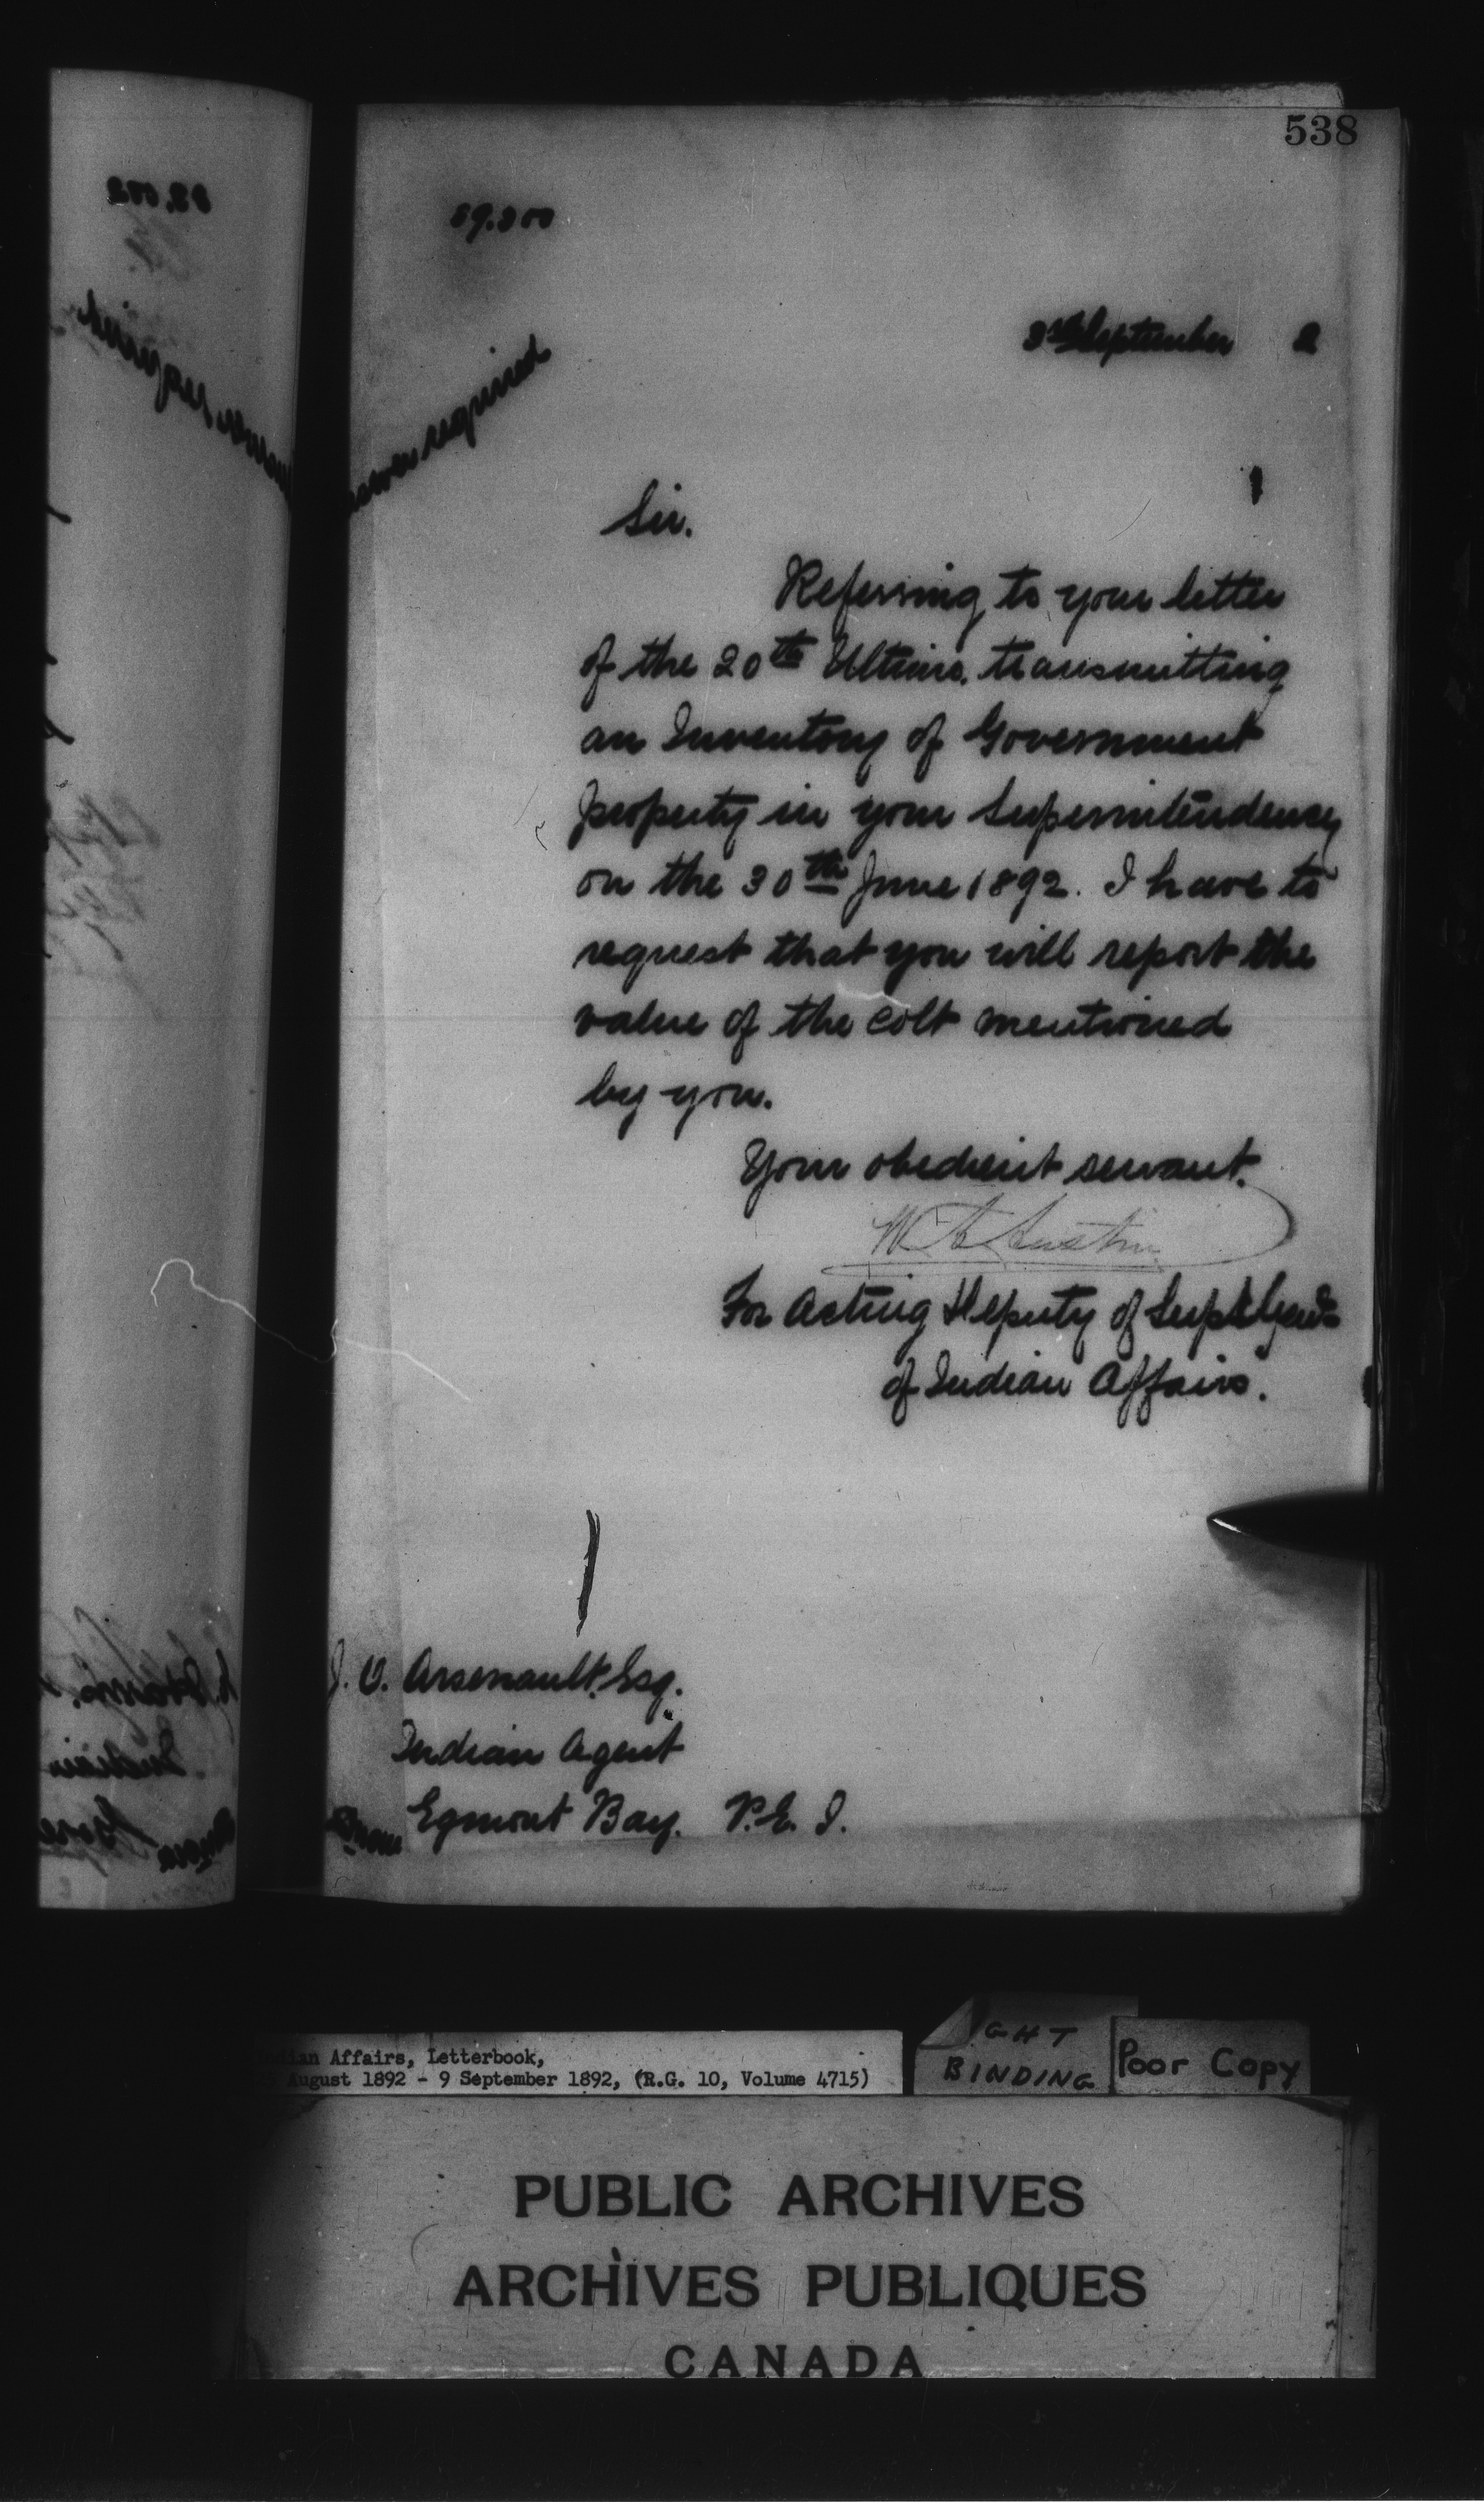 538
89.300
3rd September 2
answer required
Sir.
Referring to your letter
of the 20th Ultimo. transmitting
an Inventory of Government
property in your Superintendency
on the 30th June 1892. I have to
request that you will report the
value of the colt mentioned
by you.
Your obedient servant.
W A Austin
For Acting Deputy of Supt Genl
of Indian Affairs.
J. O. Arsenault. Esq.
Indian Agent
Egmont Bay. P. E. I.
Indian Affairs, Letterbook,
August 1892 - 9 September 1892, (R.G. 10, Volume 4715)
GHT
BINDING
Poor Copy
PUBLIC ARCHIVES
ARCHIVES PUBLIQUES
CANADA